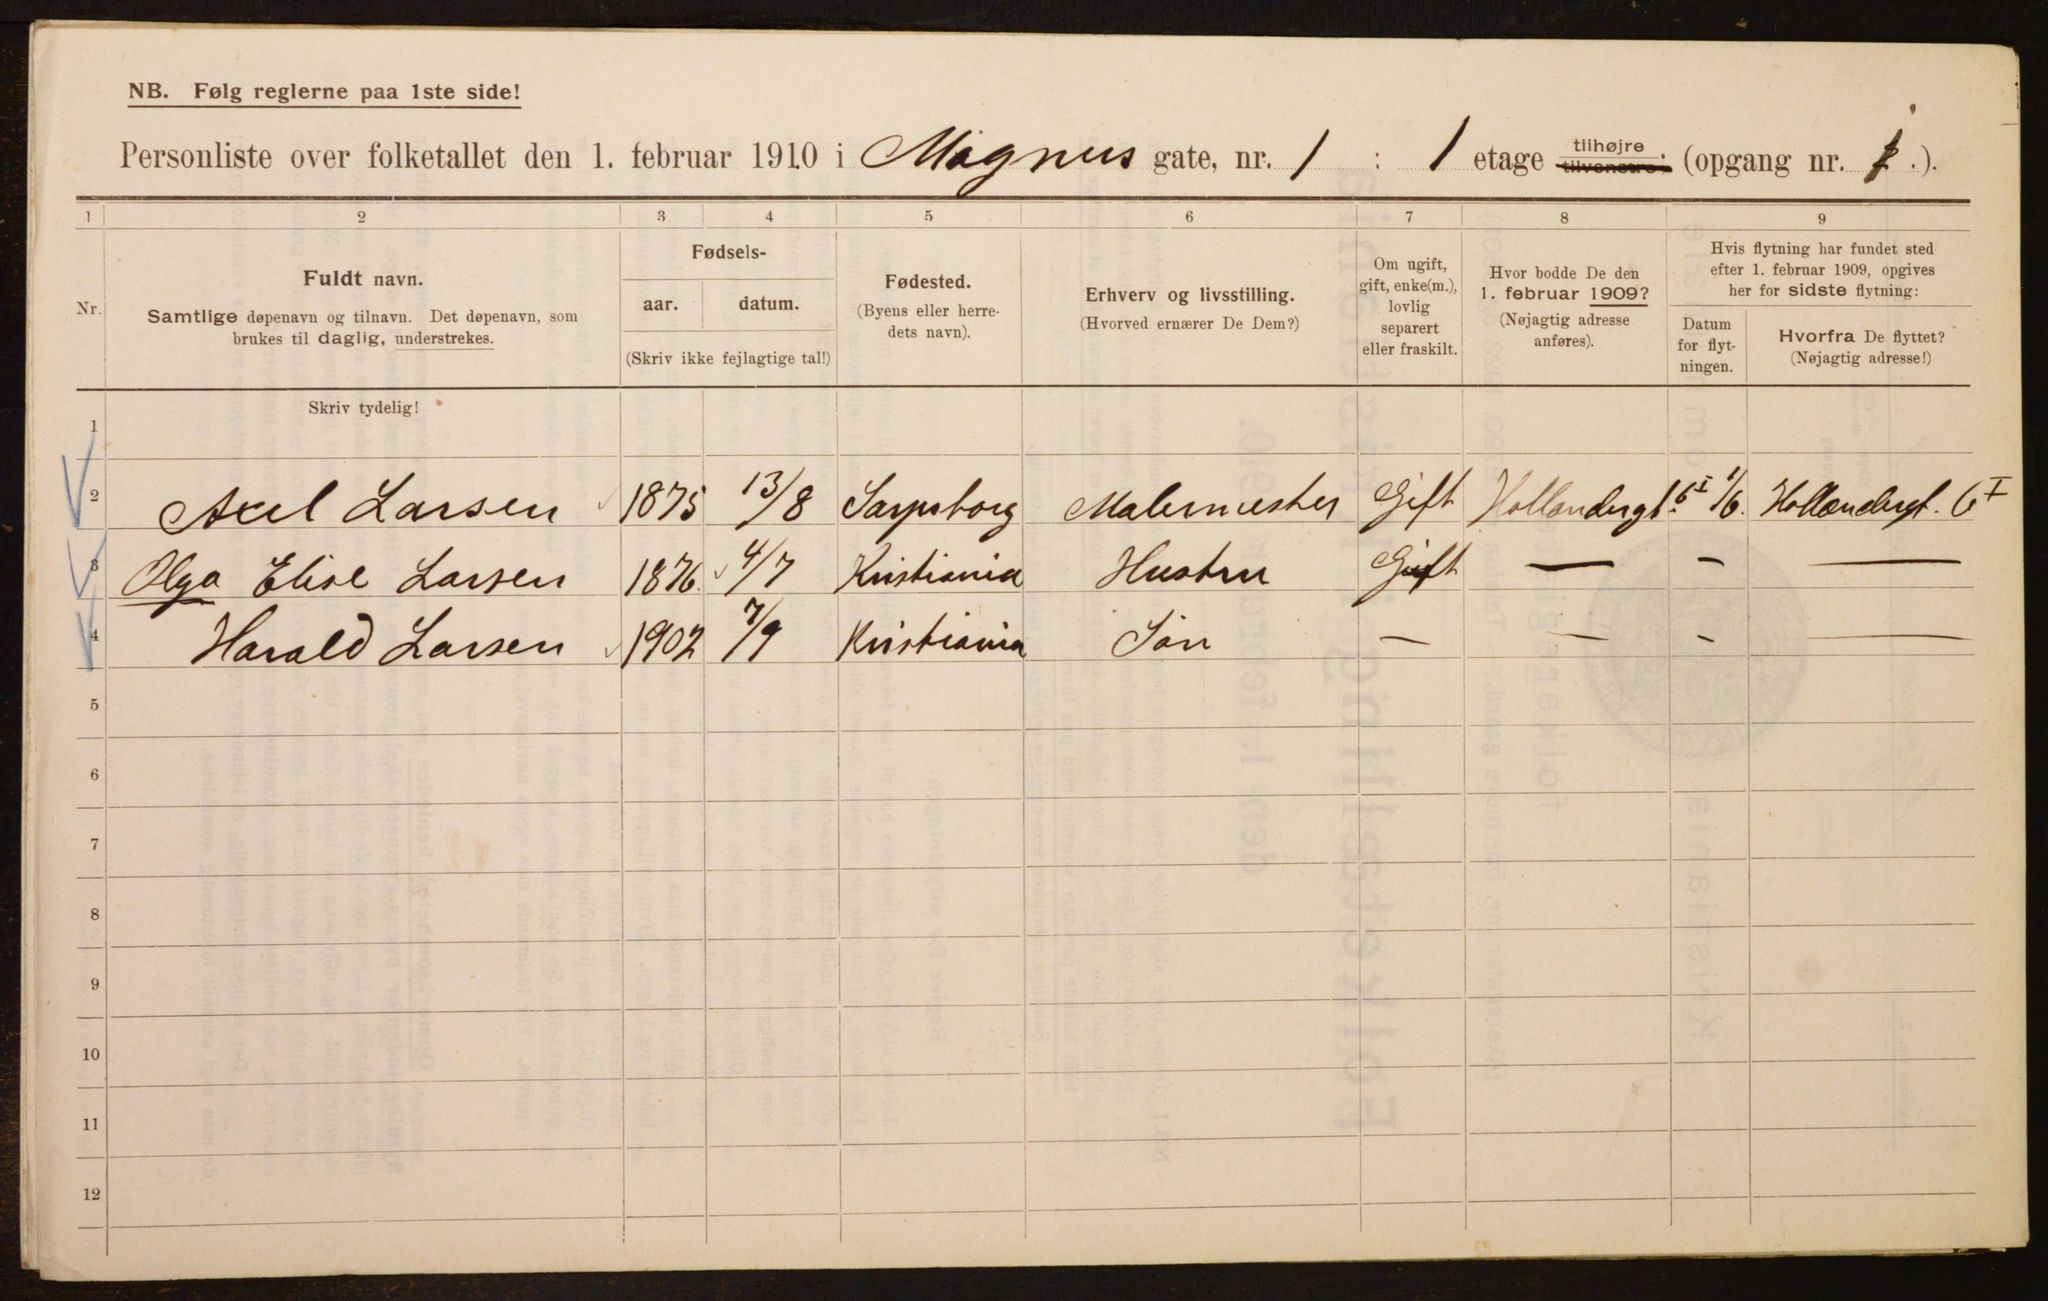 NB. Følg reglerne paa 1ste side!
Personliste over folketallet den 1. februar 1910 i Magnus gate, nr. 1 : 1 etage tilhøjre tilvenstre. (opgang nr. 1.).
1 2 3 4 5 6 7 8 9
Nr.
Fuldt navn.
Samtlige døpenavn og tilnavn. Det døpenavn, som
brukes til daglig, understrekes.
Fødsels-
aar. datum.
(Skriv ikke fejlagtige tal!)
Fødested.
(Byens eller herre-
dets navn).
Erhverv og livsstilling.
(Hvorved ernærer De Dem?)
Om ugift,
gift, enke(m.),
lovlig
separert
eller fraskilt.
Hvor bodde De den
1. februar 1909?
(Nøjagtig adresse
anføres).
Hvis flytning har fundet sted
efter 1. februar 1909, opgives
her for sidste flytning:
Datum
for flyt-
ningen.
Hvorfra De flyttet?
(Nøjagtig adresse!)
Skriv tydelig!
1
2 Axel Larsen 1875 13/8 Sarpsborg Malermester Gift Hollendergt. 6 I 1/6. Hollendergt. 6 I
3 Olga Elise Larsen 1876 4/7 Kristiania Hustru Gift — – —
4 Harald Larsen 1902 7/9 Kristiania Søn — — – —
5
6
7
8
9
10
11
12